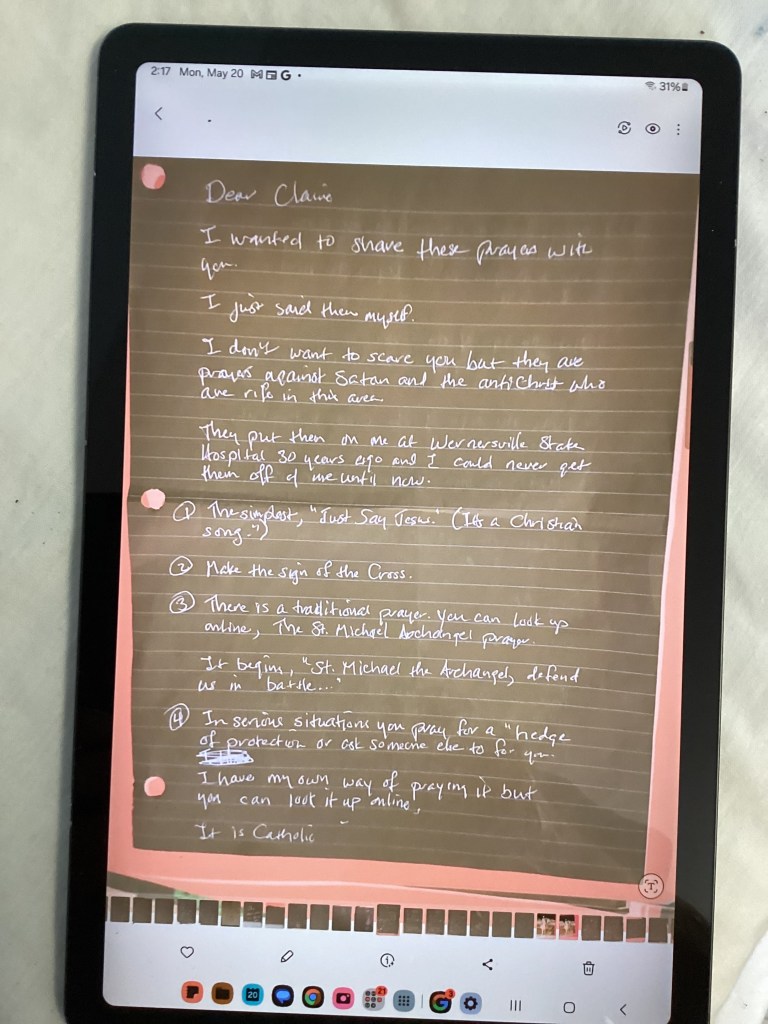 2:17 Mon, May 20
31%
Dear Claire
I wanted to share these prayers with
you.
I just said them myself.
I don't want to scare you but they are
prayers against Satan and the antiChrist who
are rife in this area
They put them on me at Wernersville State
Hospital 30 years ago and I could never get
them off of me until now.
① The simplest, "Just Say Jesus." (It's a Christian
song.")
② Make the sign of the Cross.
③ There is a traditional prayer. You can look up
online, The St. Michael Archangel prayer.
It begins, "St. Michael the Archangel, defend
us in battle..."
④ In serious situations you pray for a "hedge
of protection or ask someone else to for you.
I have my own way of praying it but
you can look it up online,
It is Catholic
T
20
21
G
3